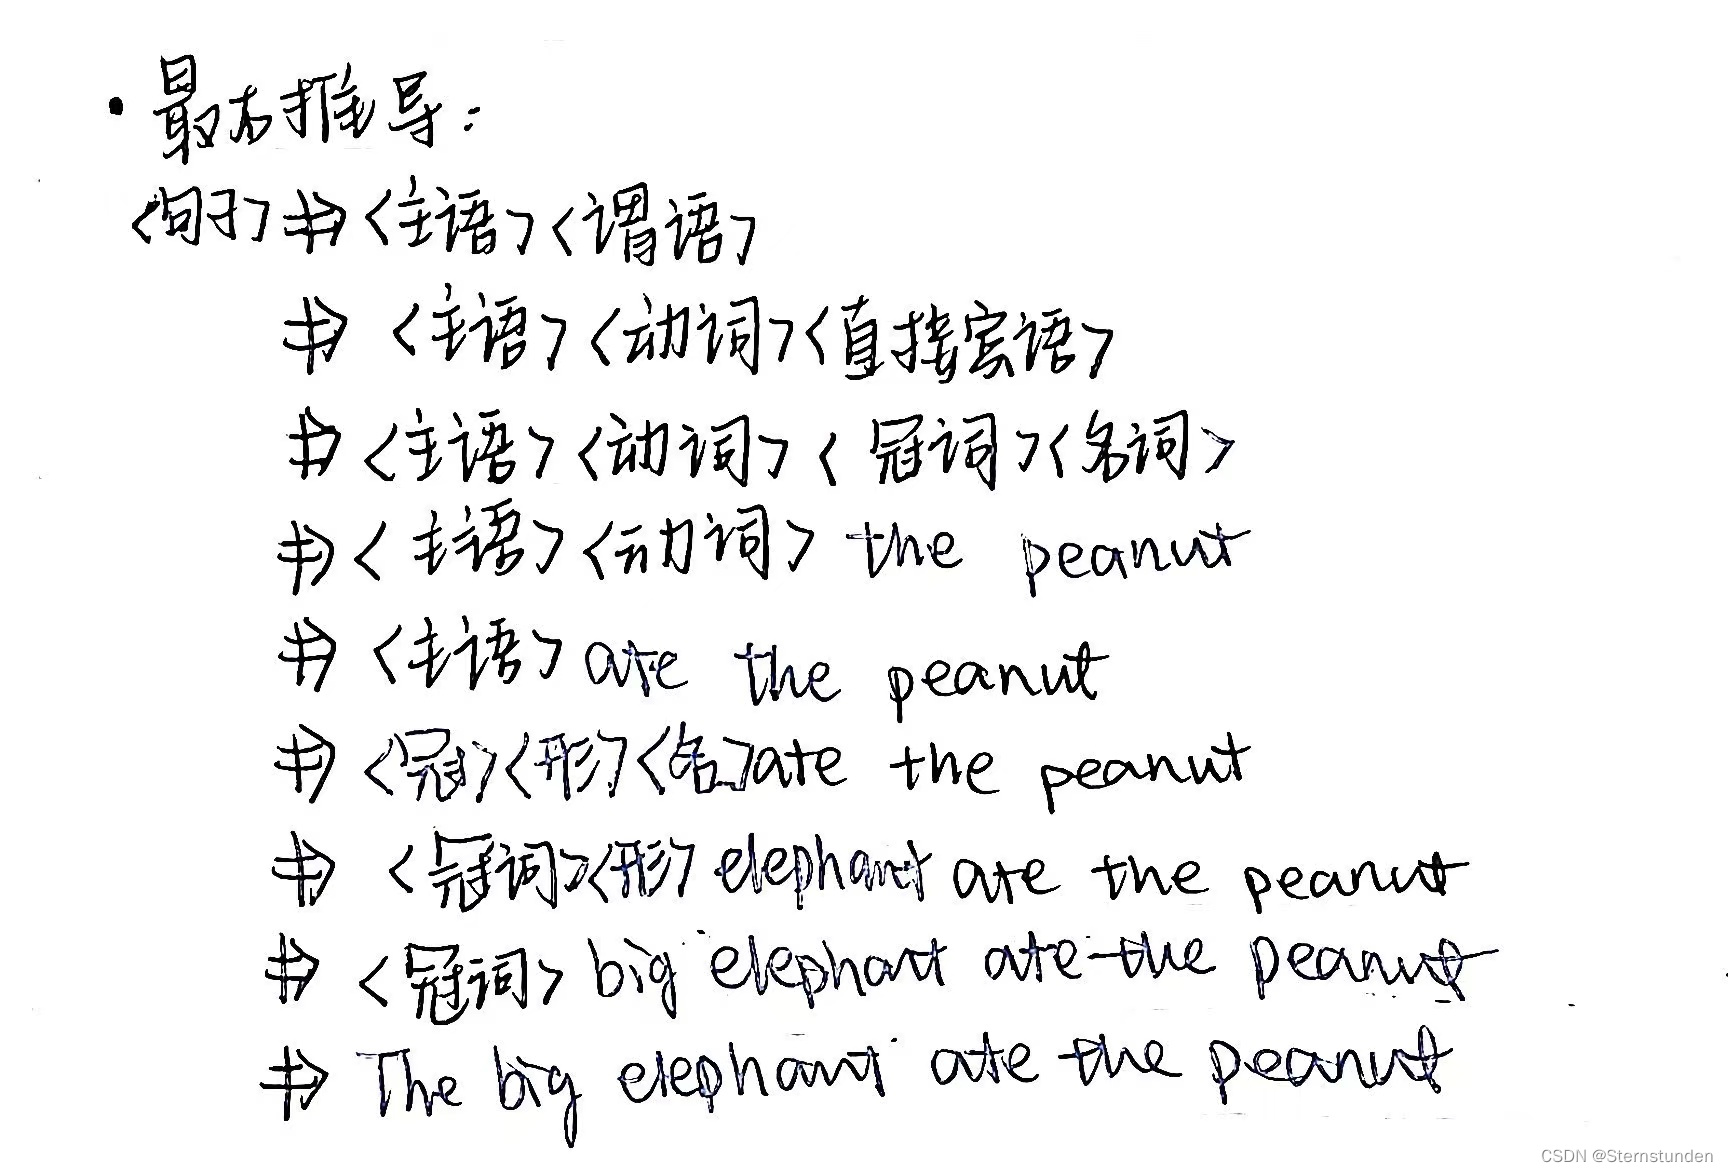 • 最右推导:
<句子> ⇒ <主语><谓语>
⇒ <主语><动词><直接宾语>
⇒ <主语><动词><冠词><名词>
⇒ <主语><动词> the peanut
⇒ <主语> ate the peanut
⇒ <冠><形><名> ate the peanut
⇒ <冠词><形> elephant ate the peanut
⇒ <冠词> big elephant ate the peanut
⇒ The big elephant ate the peanut
CSDN @Sternstunden